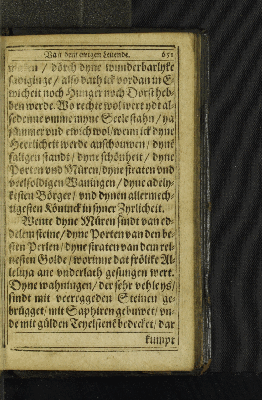 Van dem ewigen Leuende. 651
/ dörch dyne wunderbarlyke
/ also dath ick vordan in E-
wicheit noch Hunger noch Dorst heb-
ben werde. Wo rechte wol wert ydt al-
sedenne vmme myne Seele stahn / ya
jümmer vnd ewich wol / wenn ick dyne
Heerlicheit werde anschouwen / dyne
saligen standt / dyne schönheit / dyne
Porten vnd Müren / dyne straten vnd
veelfoldigen Waningen / dyne adely-
kesten Börger / vnd dynen allermech-
tigesten Köninck in syner Zyrlicheit.
Wente dyne Müren sindt van ed-
delem steine / dyne Porten van den be-
sten Perlen / dyne straten van dem rei-
nesten Golde / worinne dat frölike Al-
leluya ane vnderlath gesungen wert.
Dyne wahningen / der sehr vele ys /
sindt mit veereggeden Steinen ge-
brügget / mit Saphiren gebuwet / vn-
de mit gülden Teyelstenē bedecket / dar
kumpt